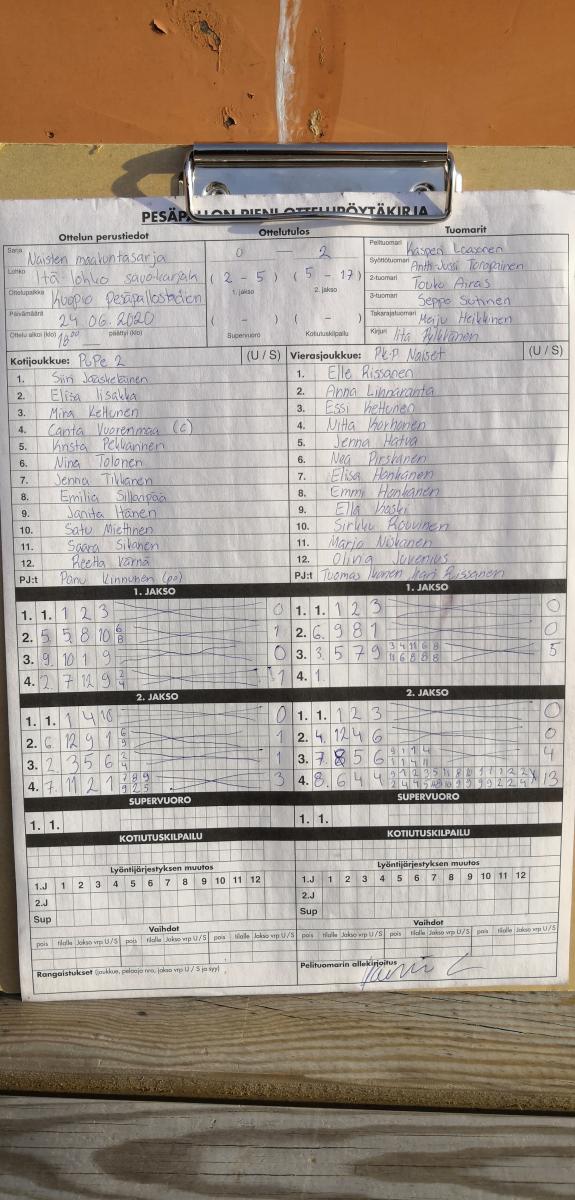 PESÄPALLON PIENI OTTELUPÖYTÄKIRJA
Ottelun perustiedot
Sarja Naisten maakuntasarja
Lohko Itä-lohko savo-karjala
Ottelupaikka Kuopio Pesäpallostadion
Päivämäärä 24.06.2020
Ottelu alkoi (klo) 18:00 päättyi (klo)
Ottelutulos
0 - 2
( 2 - 5 ) ( 5 - 17 )
1. jakso 2. jakso
( - ) ( - )
Supervuoro Kotiutuskilpailu
Tuomarit
Pelituomari Kasperi
Syöttötuomari Antti-Jussi Toropainen
2-tuomari Touko Airas
3-tuomari Seppo Sutinen
Takarajatuomari Meiju Heikkinen
Kirjuri Iita Pylkkänen
Kotijoukkue: PuPe 2 (U / S)
1. Siiri Jääskeläinen
2. Elisa Iisakka
3. Mira Kettunen
4. Vuorenmaa (c)
5. Krista Pekkarinen
6. Nina Tolonen
7. Jenna Tikkanen
8. Emilia Sillanpää
9. Janita Itänen
10. Satu Miettinen
11. Saara Siltanen
12. Reetta Värnä
PJ:t Panu Kinnunen (po)
Vierasjoukkue: PKP Naiset (U / S)
1. Elle Rissanen
2. Anna Linnaranta
3. Essi Kettunen
4. Niita Korhonen
5. Jenna Hatva
6. Nea Pirskanen
7. Elisa Honkanen
8. Emmi Honkanen
9. Ella Koski
10. Sirkku Rouvinen
11. Marjo Niskanen
12. Olina Juvenius
PJ:t Tuomas Ikonen, Jari Rissanen
1. JAKSO
1. 1. 1 2 3 0
2. 5 5 8 10 6 8 1
3. 9 10 1 9 0
4. 2 7 12 9 2 4 1
1. JAKSO
1. 1. 1 2 3 0
2. 6 9 8 1 0
3. 3 5 7 9 3 4 11 6 8 11 6 8 8 8 5
4. 1.
2. JAKSO
1. 1. 1 4 10 0
2. 6 12 9 1 6 9 1
3. 2 3 5 6 2 4 1
4. 7 11 2 1 7 8 9 9 2 5 3
2. JAKSO
1. 1. 1 2 3 0
2. 4 12 4 6 0
3. 7 8 5 6 9 1 1 4 1 1 4 11 4
4. 8 6 4 4 13
SUPERVUORO
1. 1.
SUPERVUORO
1. 1.
KOTIUTUSKILPAILU
KOTIUTUSKILPAILU
Lyöntijärjestyksen muutos
1.J 1 2 3 4 5 6 7 8 9 10 11 12
2.J
Sup
Lyöntijärjestyksen muutos
1.J 1 2 3 4 5 6 7 8 9 10 11 12
2.J
Sup
Vaihdot
pois tilalle Jakso vrp U / S pois tilalle Jakso vrp U / S pois tilalle Jakso vrp U / S
Vaihdot
pois tilalle Jakso vrp U / S pois tilalle Jakso vrp U / S pois tilalle Jakso vrp U / S
Rangaistukset (joukkue, pelaaja nro, jakso vrp U / S ja syy)
Pelituomarin allekirjoitus